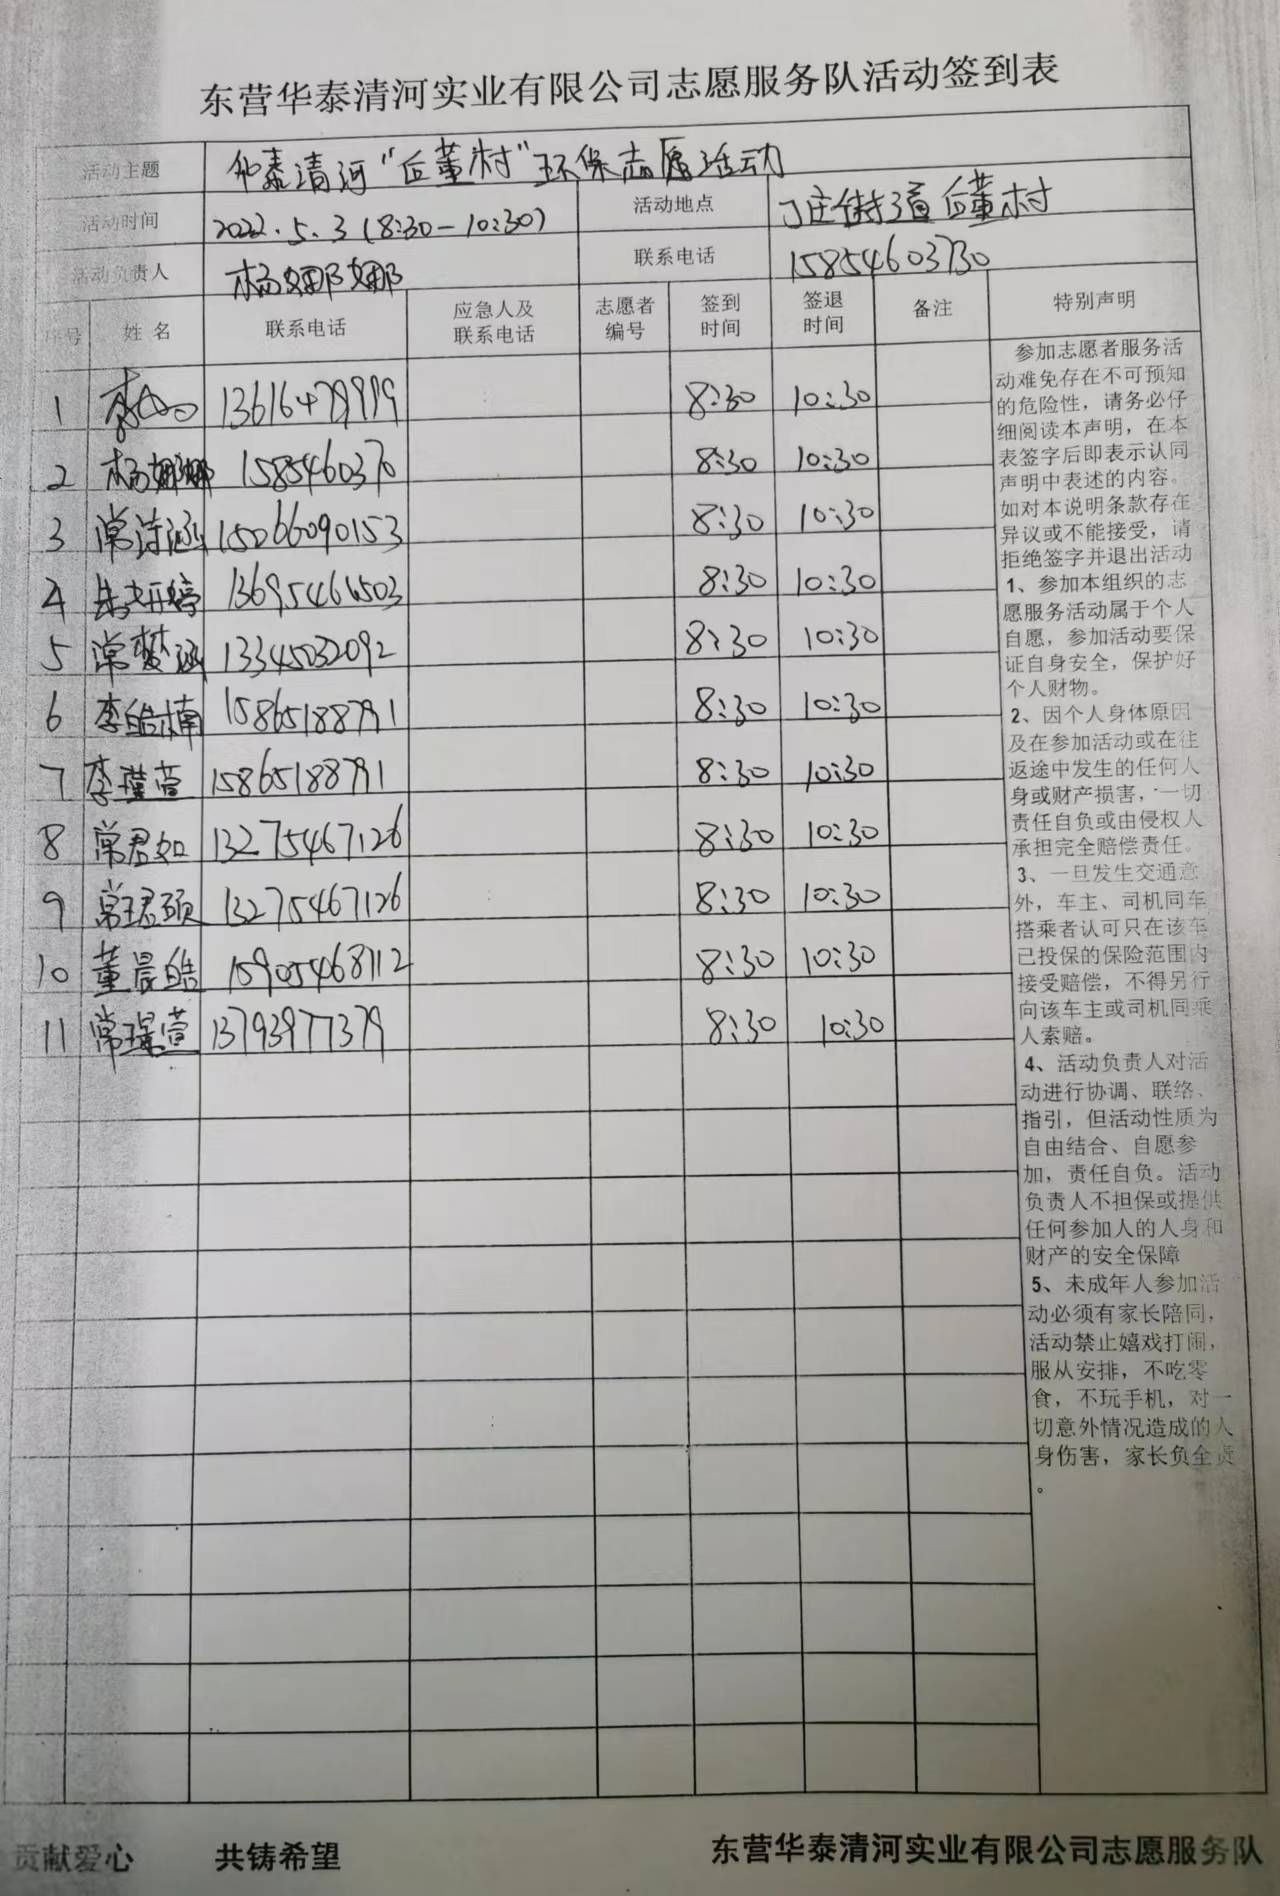 东营华泰清河实业有限公司志愿服务队活动签到表
活动主题 华泰清河“后董村”环保志愿活动
活动时间 2022.5.3(8:30-10:30) 活动地点 丁庄街道后董村
活动负责人 杨娜娜 联系电话 15854603730
序号 姓名 联系电话 应急人及联系电话 志愿者编号 签到时间 签退时间 备注 特别声明
1 13616479999 8:30 10:30
2 杨娜娜 1585460370 8:30 10:30
3 常诗涵 15066090153 8:30 10:30
4 朱妍婷 13695466503 8:30 10:30
5 常梦涵 13345032092 8:30 10:30
6 李皓楠 15865188791 8:30 10:30
7 李瑾萱 15865188791 8:30 10:30
8 常君如 13275467126 8:30 10:30
9 常珺硕 13275467126 8:30 10:30
10 董晨皓 15905468112 8:30 10:30
11 常璟萱 13793977379 8:30 10:30
参加志愿者服务活
动难免存在不可预知
的危险性，请务必仔
细阅读本声明，在本
表签字后即表示认同
声明中表述的内容。
如对本说明条款存在
异议或不能接受，请
拒绝签字并退出活动
1、参加本组织的志
愿服务活动属于个人
自愿，参加活动要保
证自身安全，保护好
个人财物。
2、因个人身体原因
及在参加活动或在往
返途中发生的任何人
身或财产损害，一切
责任自负或由侵权人
承担完全赔偿责任。
3、一旦发生交通意
外，车主、司机同车
搭乘者认可只在该车
己投保的保险范围内
接受赔偿，不得另行
向该车主或司机同乘
人索赔。
4、活动负责人对活
动进行协调、联络、
指引，但活动性质为
自由结合、自愿参
加，责任自负。活动
负责人不担保或提供
任何参加人的人身和
财产的安全保障
5、未成年人参加活
动必须有家长陪同，
活动禁止嬉戏打闹，
服从安排，不吃零
食，不玩手机，对一
切意外情况造成的人
身伤害，家长负全责
。
贡献爱心 共铸希望 东营华泰清河实业有限公司志愿服务队